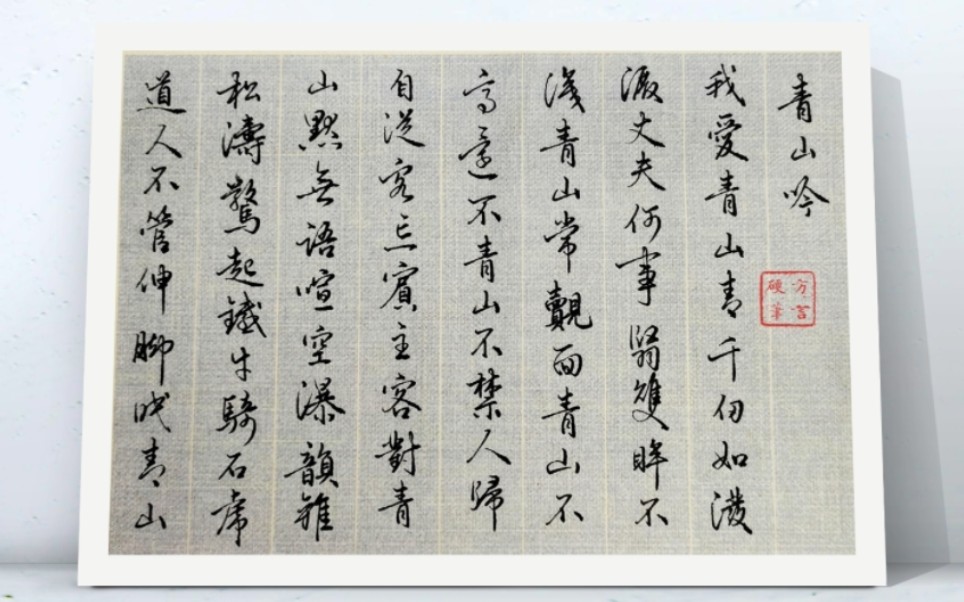 青山吟
我愛青山青千仞如潑
澱丈夫何事翳雙眸不
識青山常覿面青山不
高還不青山不禁人歸
自從客忘賓主客對青
山默無語喧空瀑韻雜
松濤驚起鐵牛騎石虎
道人不管伸脚眠青山
方言硬筆